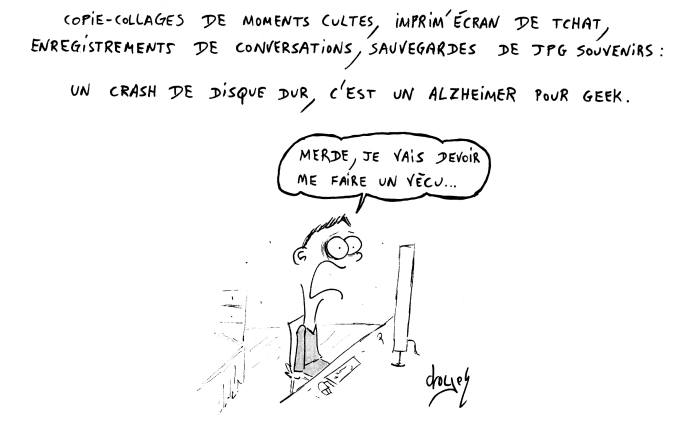 COPIE-COLLAGES DE MOMENTS CULTES, IMPRIM'ÉCRAN DE TCHAT,
ENREGISTREMENTS DE CONVERSATIONS, SAUVEGARDES DE JPG SOUVENIRS :
UN CRASH DE DISQUE DUR, C'EST UN ALZHEIMER POUR GEEK.
MERDE, JE VAIS DEVOIR
ME FAIRE UN VÉCU...